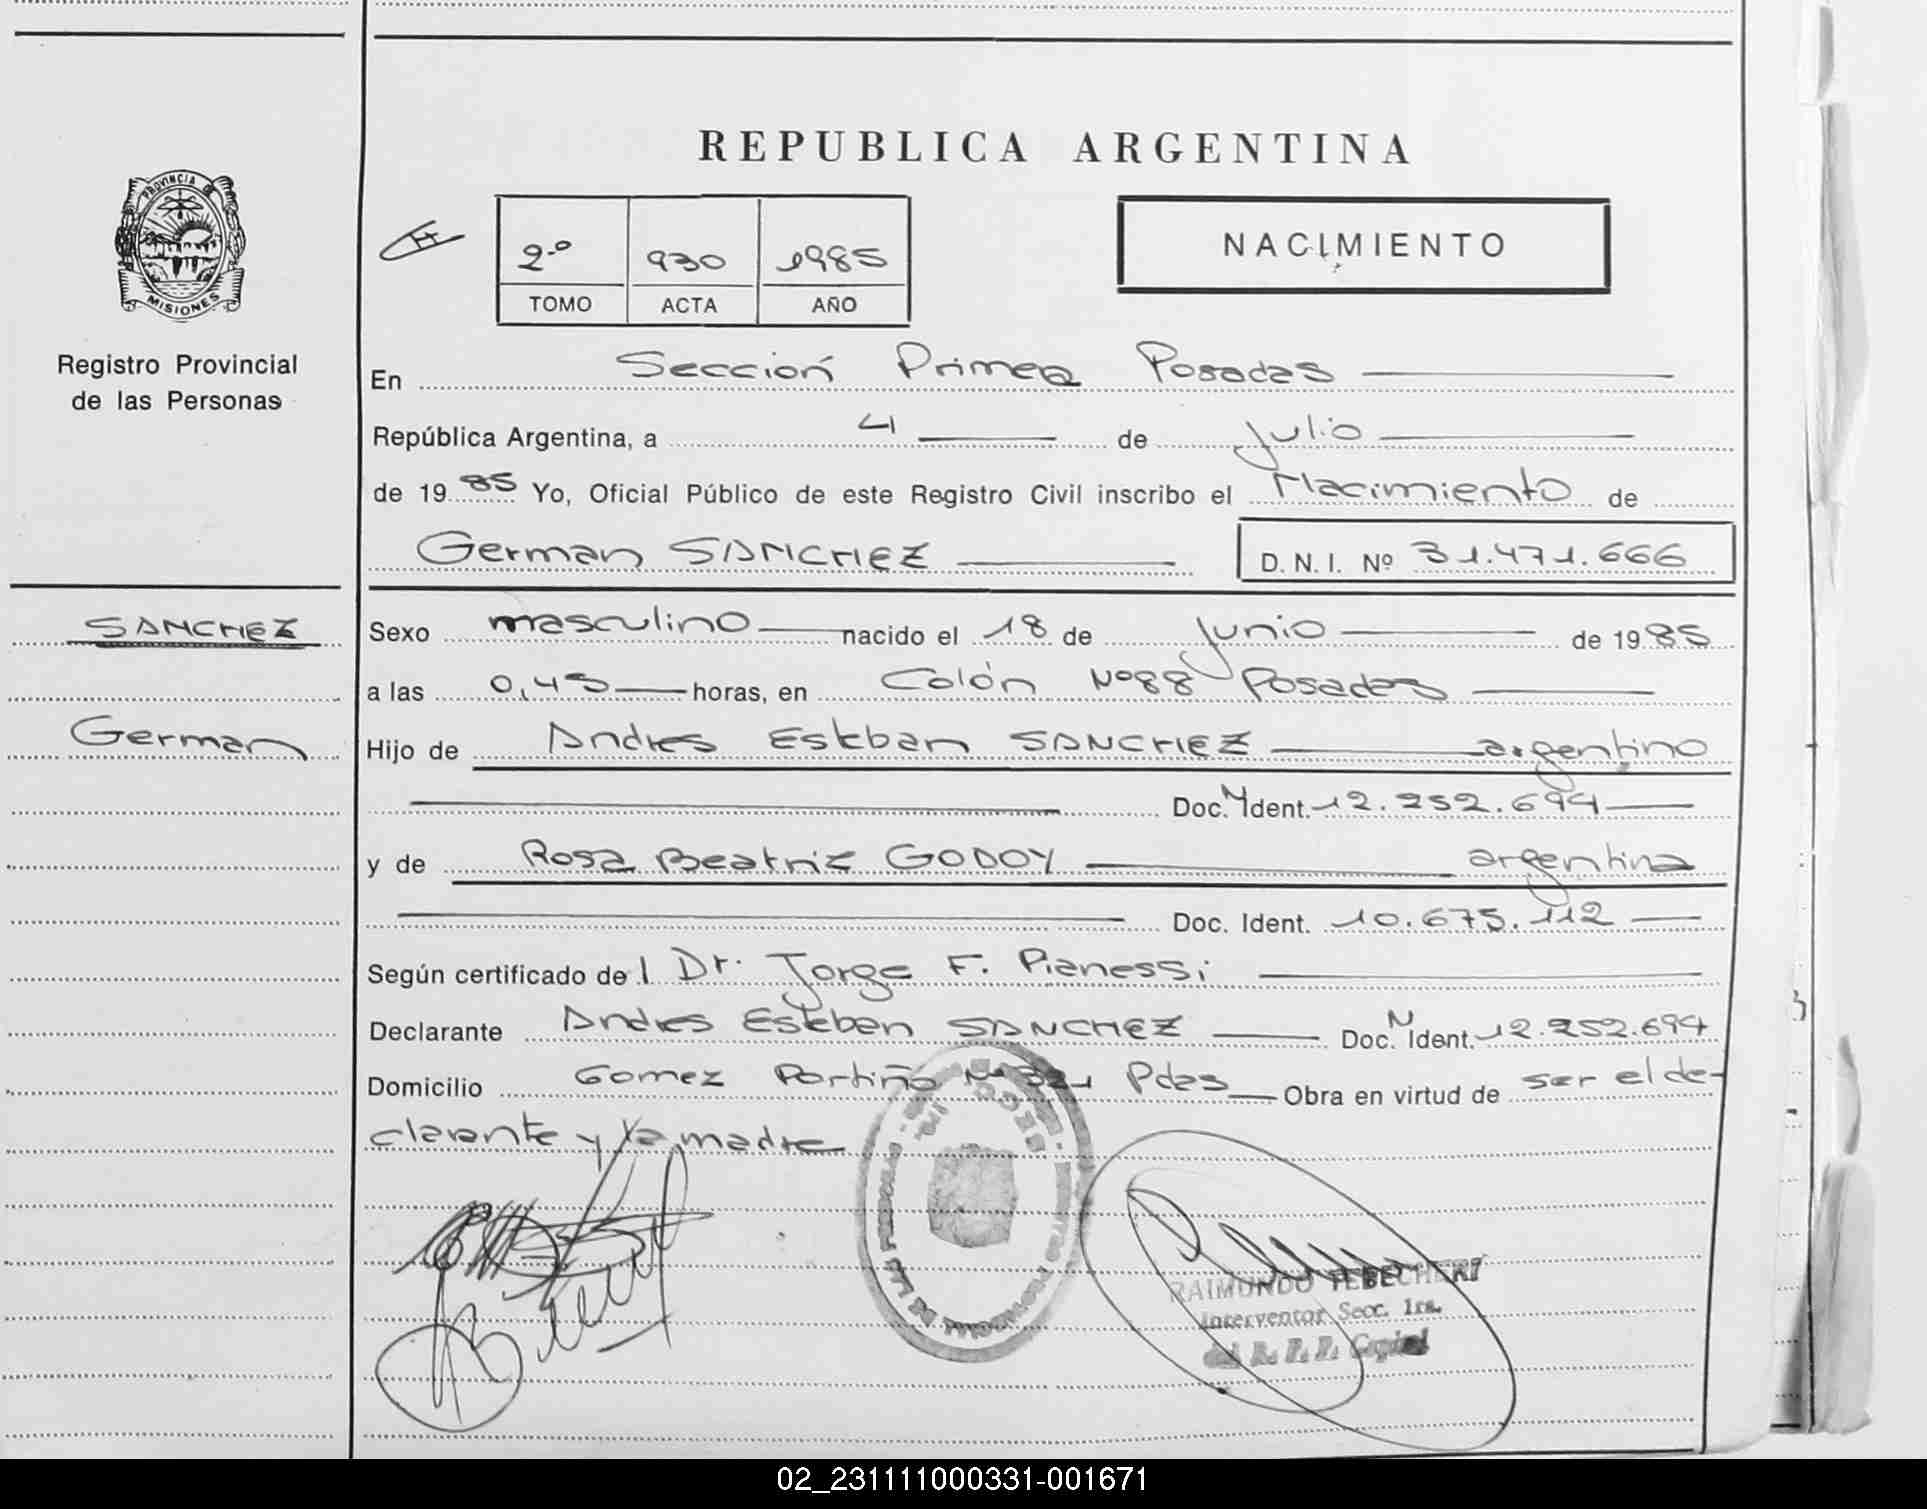 REPUBLICA ARGENTINA
PROVINCIA DE
MISIONES
Registro Provincial
de las Personas
2º 930 1985
TOMO ACTA AÑO
NACIMIENTO
En Sección Primera Posadas
República Argentina, a 4 de Julio
de 1985 Yo, Oficial Público de este Registro Civil inscribo el Nacimiento de
German SANCHEZ D. N. I. Nº 31.471.666
SANCHEZ
German
Sexo masculino nacido el 18 de Junio de 1985
a las 0,45 horas, en Colón Nº88 Posadas
Hijo de Andres Esteban SANCHEZ argentino
Doc. N Ident. 12.252.694
y de Rosa Beatriz GODOY argentina
Doc. Ident. 10.675.112
Según certificado de l Dr. Jorge F. Pianessi
Declarante Andres Esteban SANCHEZ Doc. N Ident. 12.252.694
Domicilio Gomez Portiño Nº 321 Pdas Obra en virtud de ser el de-
clarante y la madre
RAIMUNDO TEBECHERI
Interventor Secc. 1ra.
del R. P. P. Capital
02_231111000331-001671